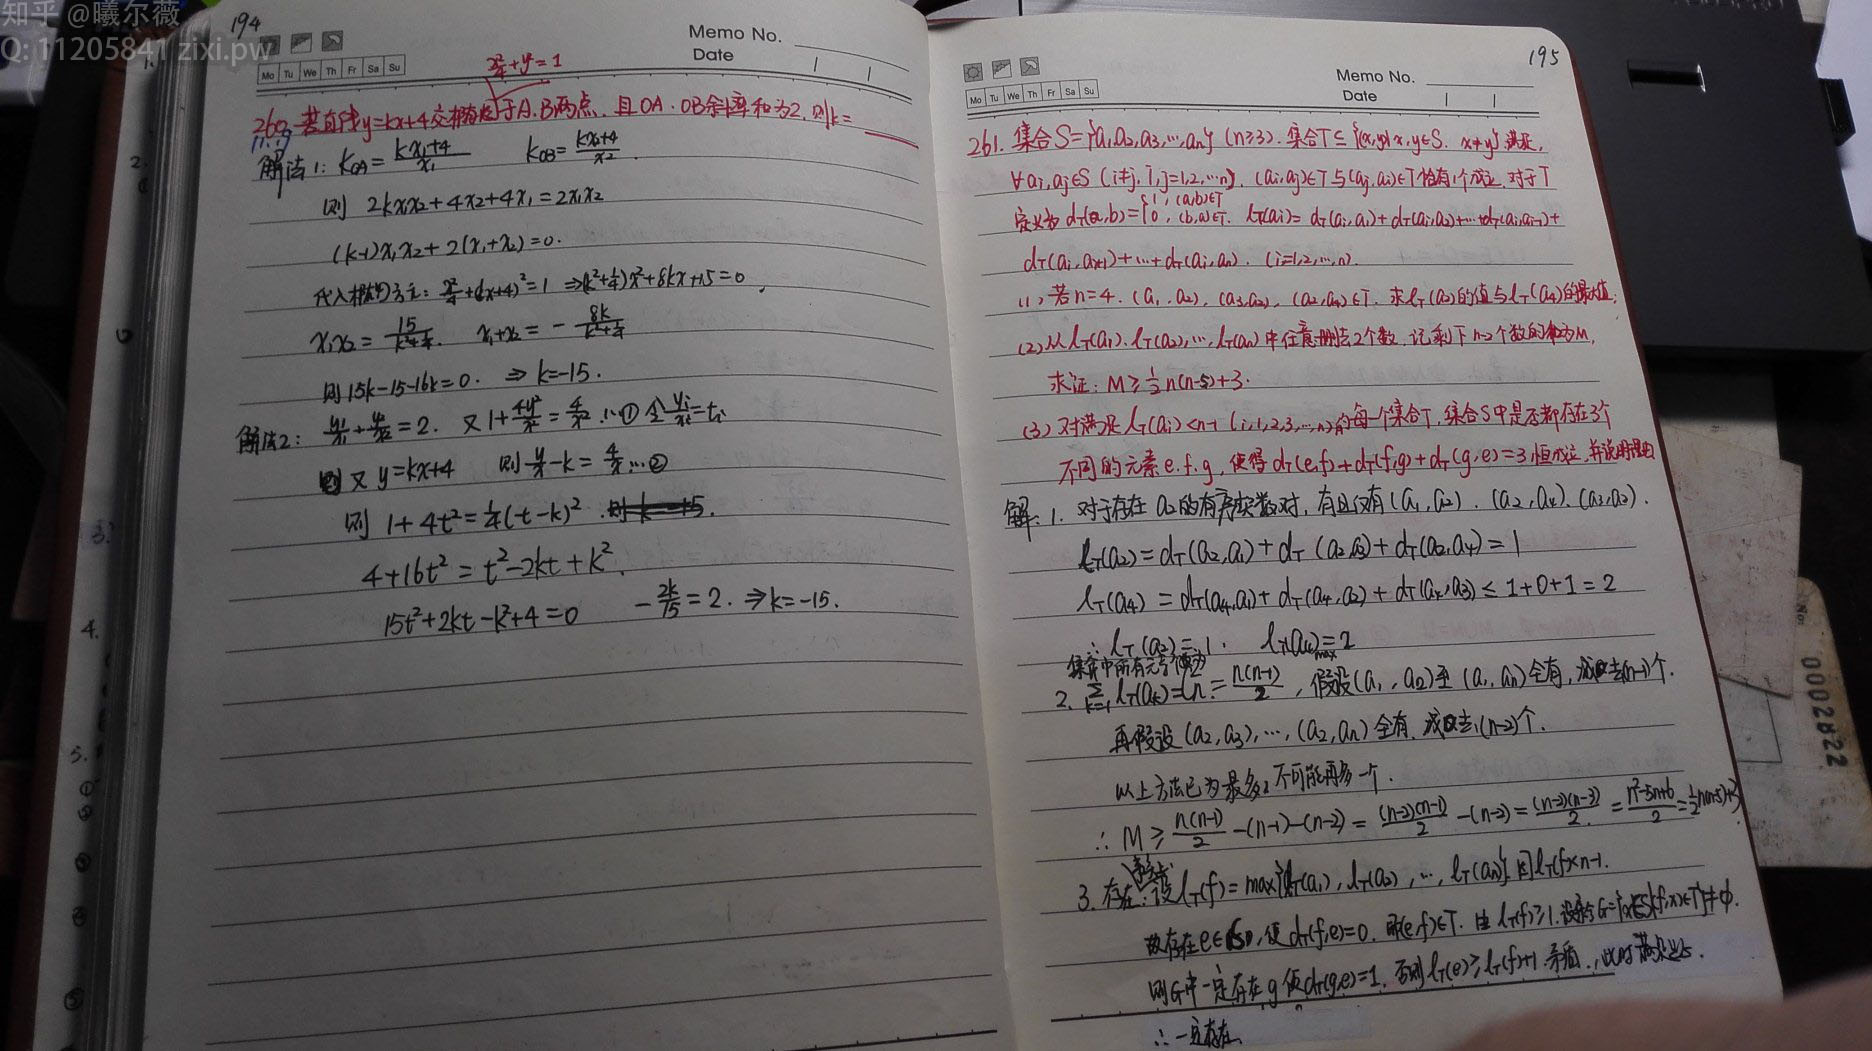 知乎 @曦尔薇
Q: 11205841 zixi.pw
194
Memo No.
Date
Mo Tu We Th Fr Sa Su
x²/4+y²=1
260. 若直线y=kx+4交椭圆于A.B两点. 且OA.OB斜率和为2. 则k=
11.9
解法1: k_OA=(kx₁+4)/x₁ k_OB=(kx₂+4)/x₂.
则 2kx₁x₂+4x₂+4x₁=2x₁x₂
(k-1)x₁x₂+2(x₁+x₂)=0.
代入椭圆方程: x²/4+(kx+4)²=1 ⇒(k²+1/4)x²+8kx+15=0
x₁x₂=15/(k²+1/4). x₁+x₂=-8k/(k²+1/4)
则15k-15-16k=0. ⇒k=-15.
解法2: y₁/x₁+y₂/x₂=2. 又1+4y²/x²=4/x² ∴① 令yᵢ/xᵢ=tᵢ
又y=kx+4 则y/x-k=4/x…②
则 1+4t²=1/4(t-k)².
4+16t²=t²-2kt+k².
15t²+2kt-k²+4=0 -2k/15=2. ⇒k=-15.
195
Memo No.
Date
Mo Tu We Th Fr Sa Su
261. 集合S={a₁,a₂,a₃,…,aₙ} (n≥3). 集合T⊆{(x,y)|x,y∈S. x≠y}.满足,
∀aᵢ,aⱼ∈S (i≠j,i,j=1,2,…n). (aᵢ,aⱼ)∈T与(aⱼ,aᵢ)∈T恰有1个成立.对于T
定义为d_T(a,b)={1, (a,b)∈T 0, (b,a)∈T. l_T(aᵢ)=d_T(aᵢ,a₁)+d_T(aᵢ,a₂)+…+d_T(aᵢ,aᵢ₋₁)+
d_T(aᵢ,aᵢ₊₁)+…+d_T(aᵢ,aₙ). (i=1,2,…,n).
(1) 若n=4. (a₁,a₂), (a₃,a₂), (a₂,a₄)∈T. 求l_T(a₂)的值与l_T(a₄)的最大值;
(2) 从l_T(a₁).l_T(a₂),…,l_T(aₙ)中任意删去2个数,记剩下n-2个数的和为M,
求证: M≥½n(n-5)+3.
(3) 对满足l_T(aᵢ)<n-1 (i,1,2,3,…,n)的每一个集合T,集合S中是否都存在3个
不同的元素e.f.g,使得d_T(e,f)+d_T(f,g)+d_T(g,e)=3恒成立,并说明理由
解:1. 对于存在a₂的有序实数对,有且仅有(a₁,a₂).(a₂,a₄).(a₃,a₂).
l_T(a₂)=d_T(a₂,a₁)+d_T(a₂,a₃)+d_T(a₂,a₄)=1
l_T(a₄)=d_T(a₄,a₁)+d_T(a₄,a₂)+d_T(a₄,a₃)≤1+0+1=2
∴l_T(a₂)=1. l_T(a₄)max=2
集合中所有元素
2. Σ l_T(aₖ)=Cₙ²=n(n-1)/2, 假设(a₁,a₂)至(a₁,aₙ)全有,减去(n-1)个.
再假设(a₂,a₃),…,(a₂,aₙ)全有,减去(n-2)个.
以上方法已为最多,不可能再多一个.
∴M≥n(n-1)/2-(n-1)-(n-2)=(n-2)(n-1)/2-(n-2)=(n-2)(n-3)/2=(n²-5n+6)/2=½n(n-5)+3
3. 存在:设l_T(f)=max{l_T(a₁),l_T(a₂),…,l_T(aₙ)},因l_T(f)<n-1.
故存在e∈S,使d_T(f,e)=0. 即(e,f)∈T. 由l_T(f)≥1.设G={x∈S|(f,x)∈T}≠∅.
则G中一定存在g使d_T(g,e)=1,否则l_T(e)≥l_T(f)+1.矛盾.
∴一定存在.